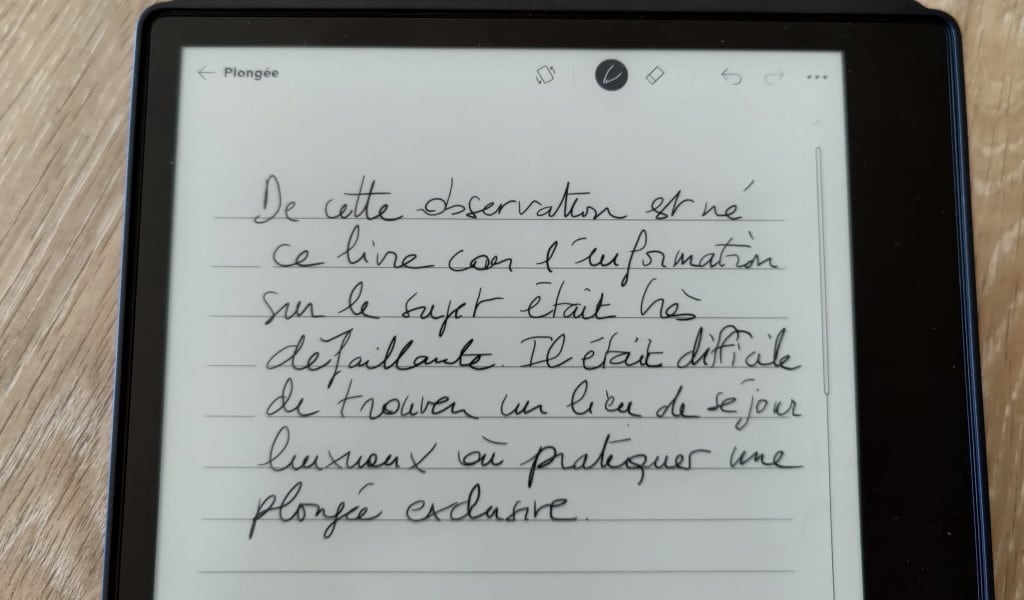 Plongée
De cette observation est né
ce livre car l'information
sur le sujet était très
défaillante. Il était difficile
de trouver un lieu de séjour
luxueux où pratiquer une
plongée exclusive.